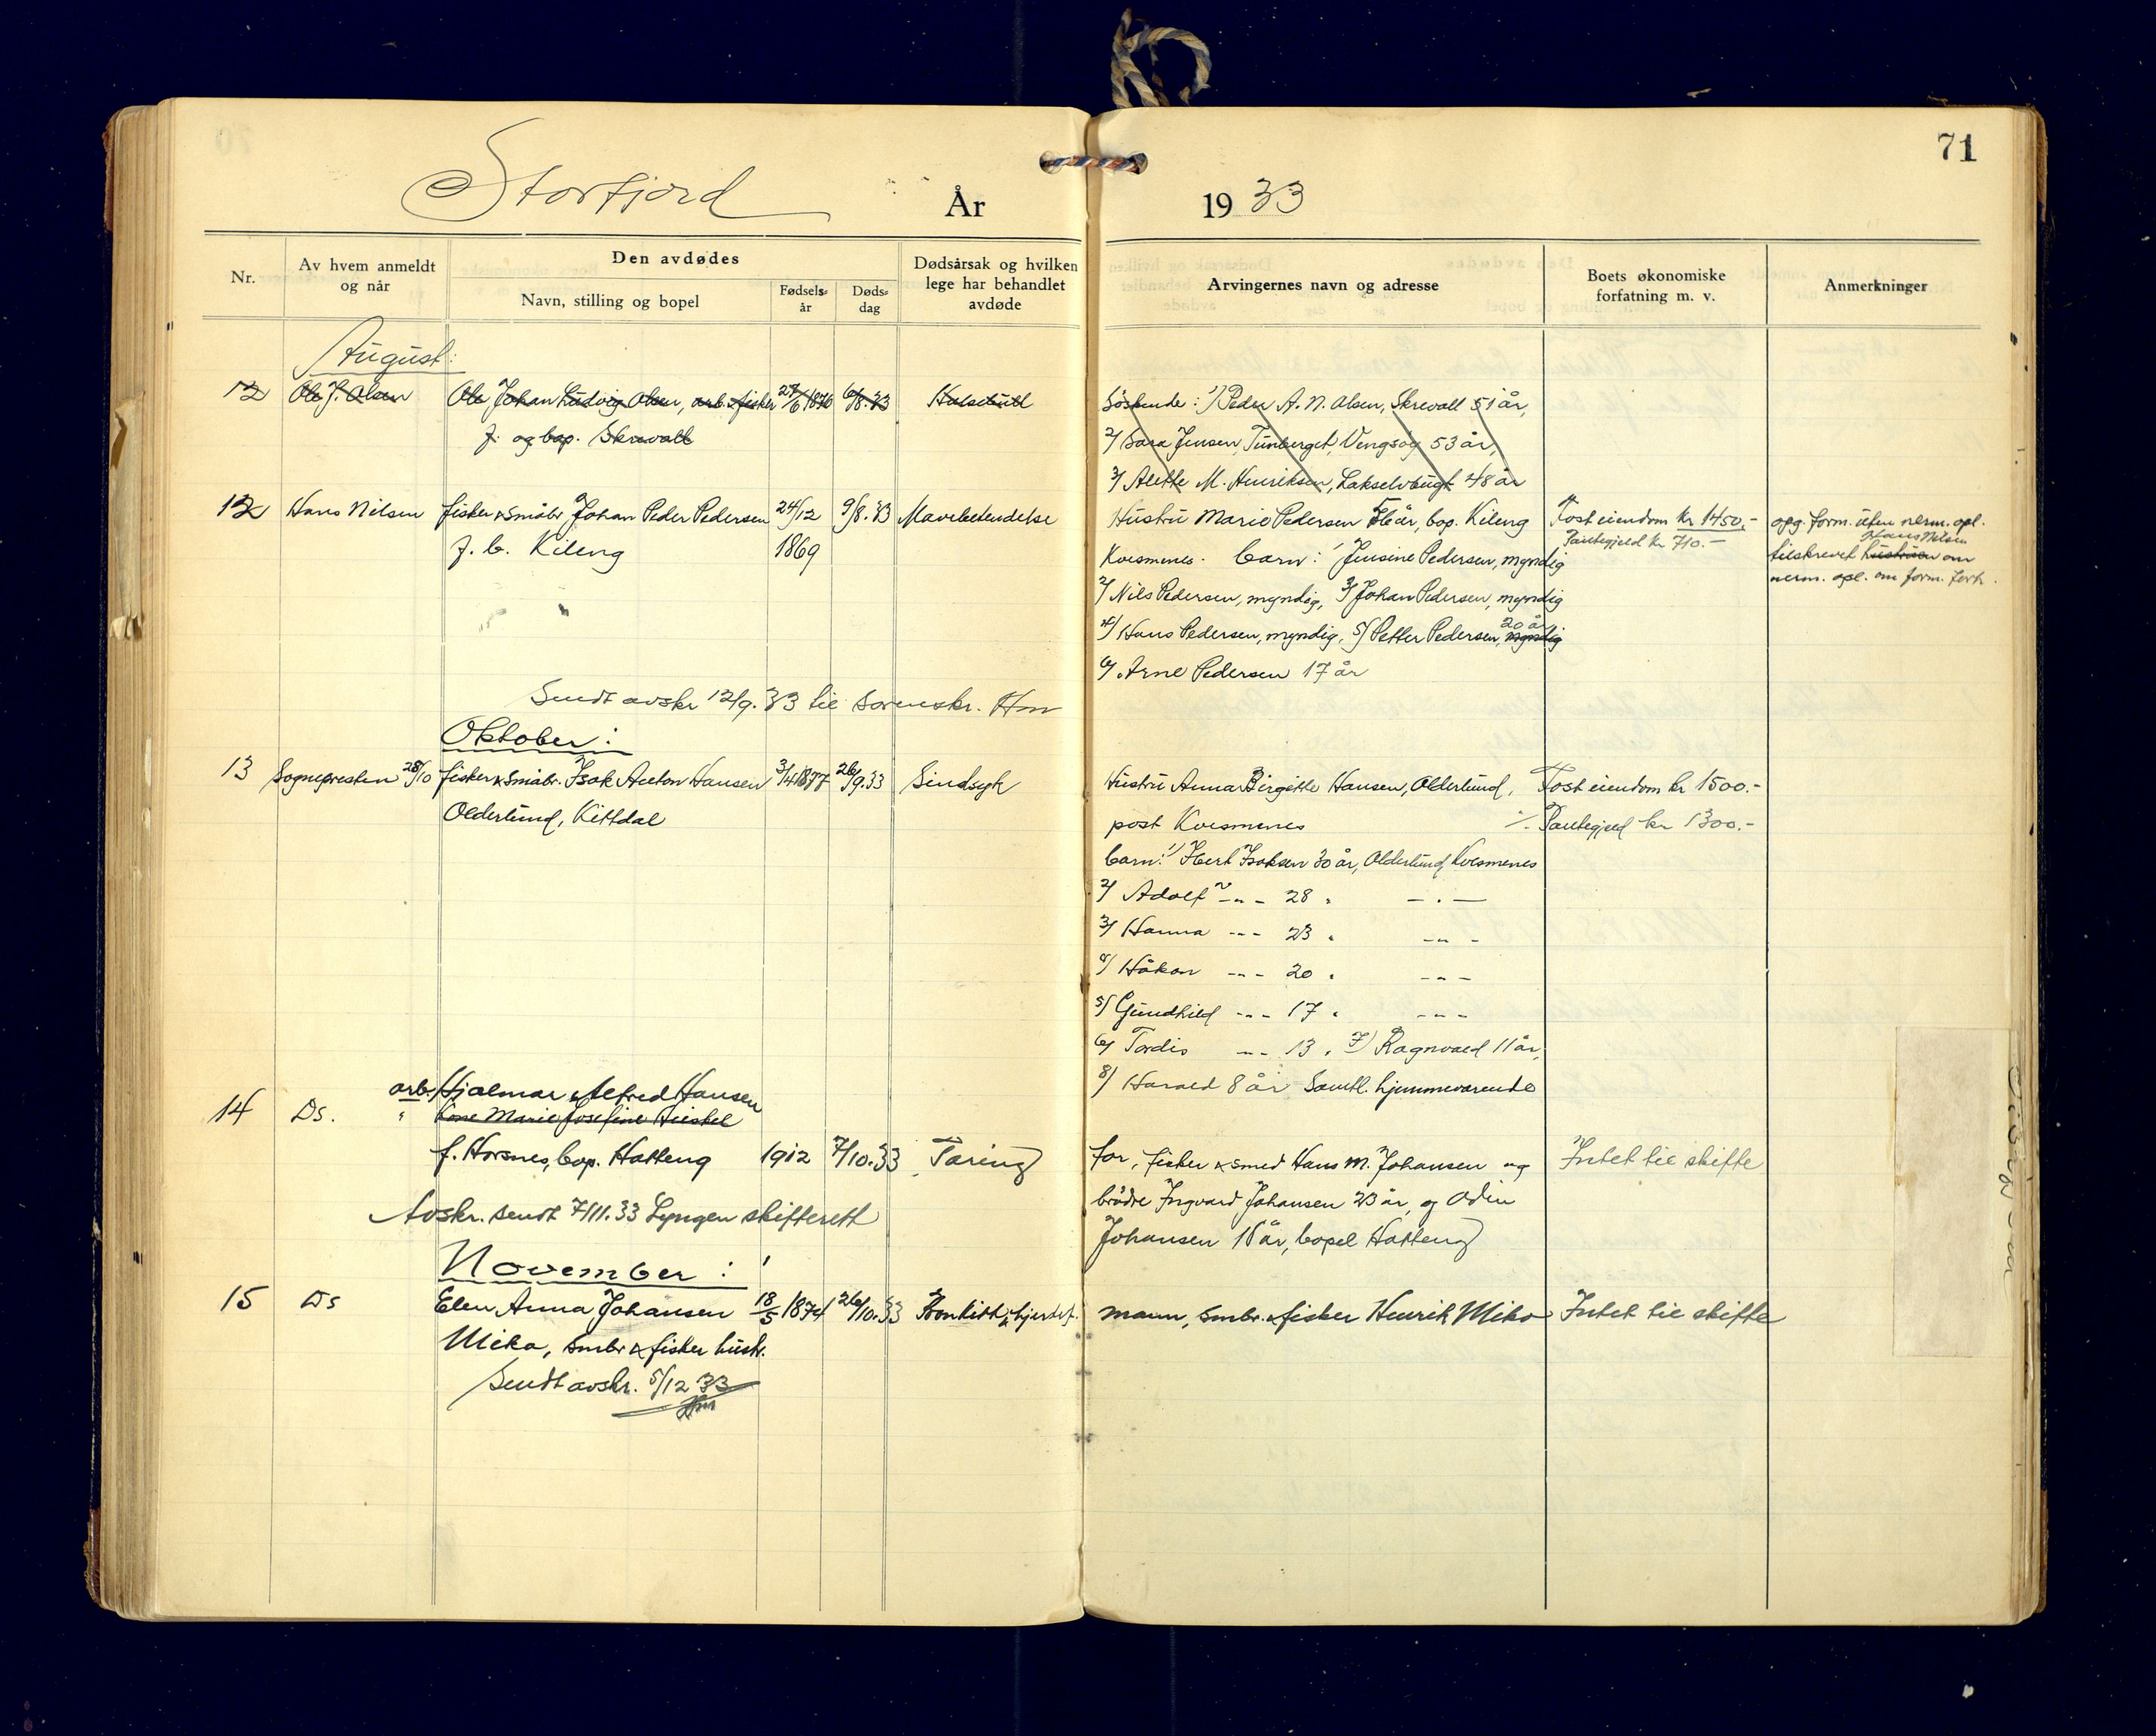 71
Storfjord
År
1933
Nr.
Av hvem anmeldt
og når
Den avdødes
Navn, stilling og bopel
Fødsels-
år
Døds-
dag
Dødsårsak og hvilken
lege har behandlet
avdøde
Arvingernes navn og adresse
Boets økonomiske
forfatning m. v.
Anmerkninger
August:
12 Ole J. Olsen Ole Johan Ludvig Olsen, arb. & fisker 27/6 1876 6/8.33
f. og bop. Skrevall
Søskende: 1) Peder A. N. Olsen, Skrevall 51 år,
2/ Sara Jensen, Vengsøy 53 år,
3/ Alette M. Henriksen, Lakselvbugt 48 år
12 Hans Nilsen fisker & småbr. Johan Peder Pedersen 24/12 9/8.33 Mavebetendelse
f. b. Kileng 1869
Hustru Marie Pedersen år, bop. Kileng
Kvesmenes. barn: 1/ Jensine Pedersen, myndig
2/ Nils Pedersen, myndig, 3/ Johan Pedersen, myndig
4/ Hans Pedersen, myndig, 5/ Petter Pedersen, myndig 20 år
6/ Arne Pedersen 17 år
Fast eiendom kr 1450.-
Pantegjeld kr 710.-
opg. form. uten nerm. opl.
Hans Nilsen
tilskrevet hustruen om
nerm. opl. om form. forh.
Sendt avskr 12/9.33 til sorenskr. Hm
Oktober:
13 Sognepresten 28/10 fisker & småbr. Isak Anton Hansen 3/4 1877 26/9.33 Sindsyk
Olderlund, Kittdal
Hustru Anna Birgitte Hansen, Olderlund,
post Kvesmenes
Fast eiendom kr 1500.-
÷ Pantegjeld kr 1300.-
barn: 1/ Hert Isaksen 30 år, Olderlund, Kvesmenes
2/ Adolf -"- 28 " -"-
3/ Hanna -"- 23 " -"-
4/ Håkon -"- 20 " -"-
5/ Gundhild -"- 17 " -"-
6/ Tordis -"- 13 " 7) Ragnvald 11 år,
8/ Harald 8 år Samtl. hjemmeværende
arb. Hjalmar Alfred Hansen
14 Ds. " Lone Marie Josefine
f. Horsnes, bop. Hatteng 1912 7/10.33 Tæring
far, fisker & smed Hans M. Johansen og
brødre Ingvard Johansen 23 år, og Odin
Johansen år, bopel Hatteng
Intet til skifte
Avskr. sendt 7/11.33 Lyngen skifterett
November:
15 Ds Elen Anna Johansen 18/5 1874 26/10.33 Bronkitt & hjertef.
Mika, smbr & fisker hustr.
mann, smbr. & fisker Henrik Mika
Intet til skifte
Sendt avskr. 5/12 33
Hm